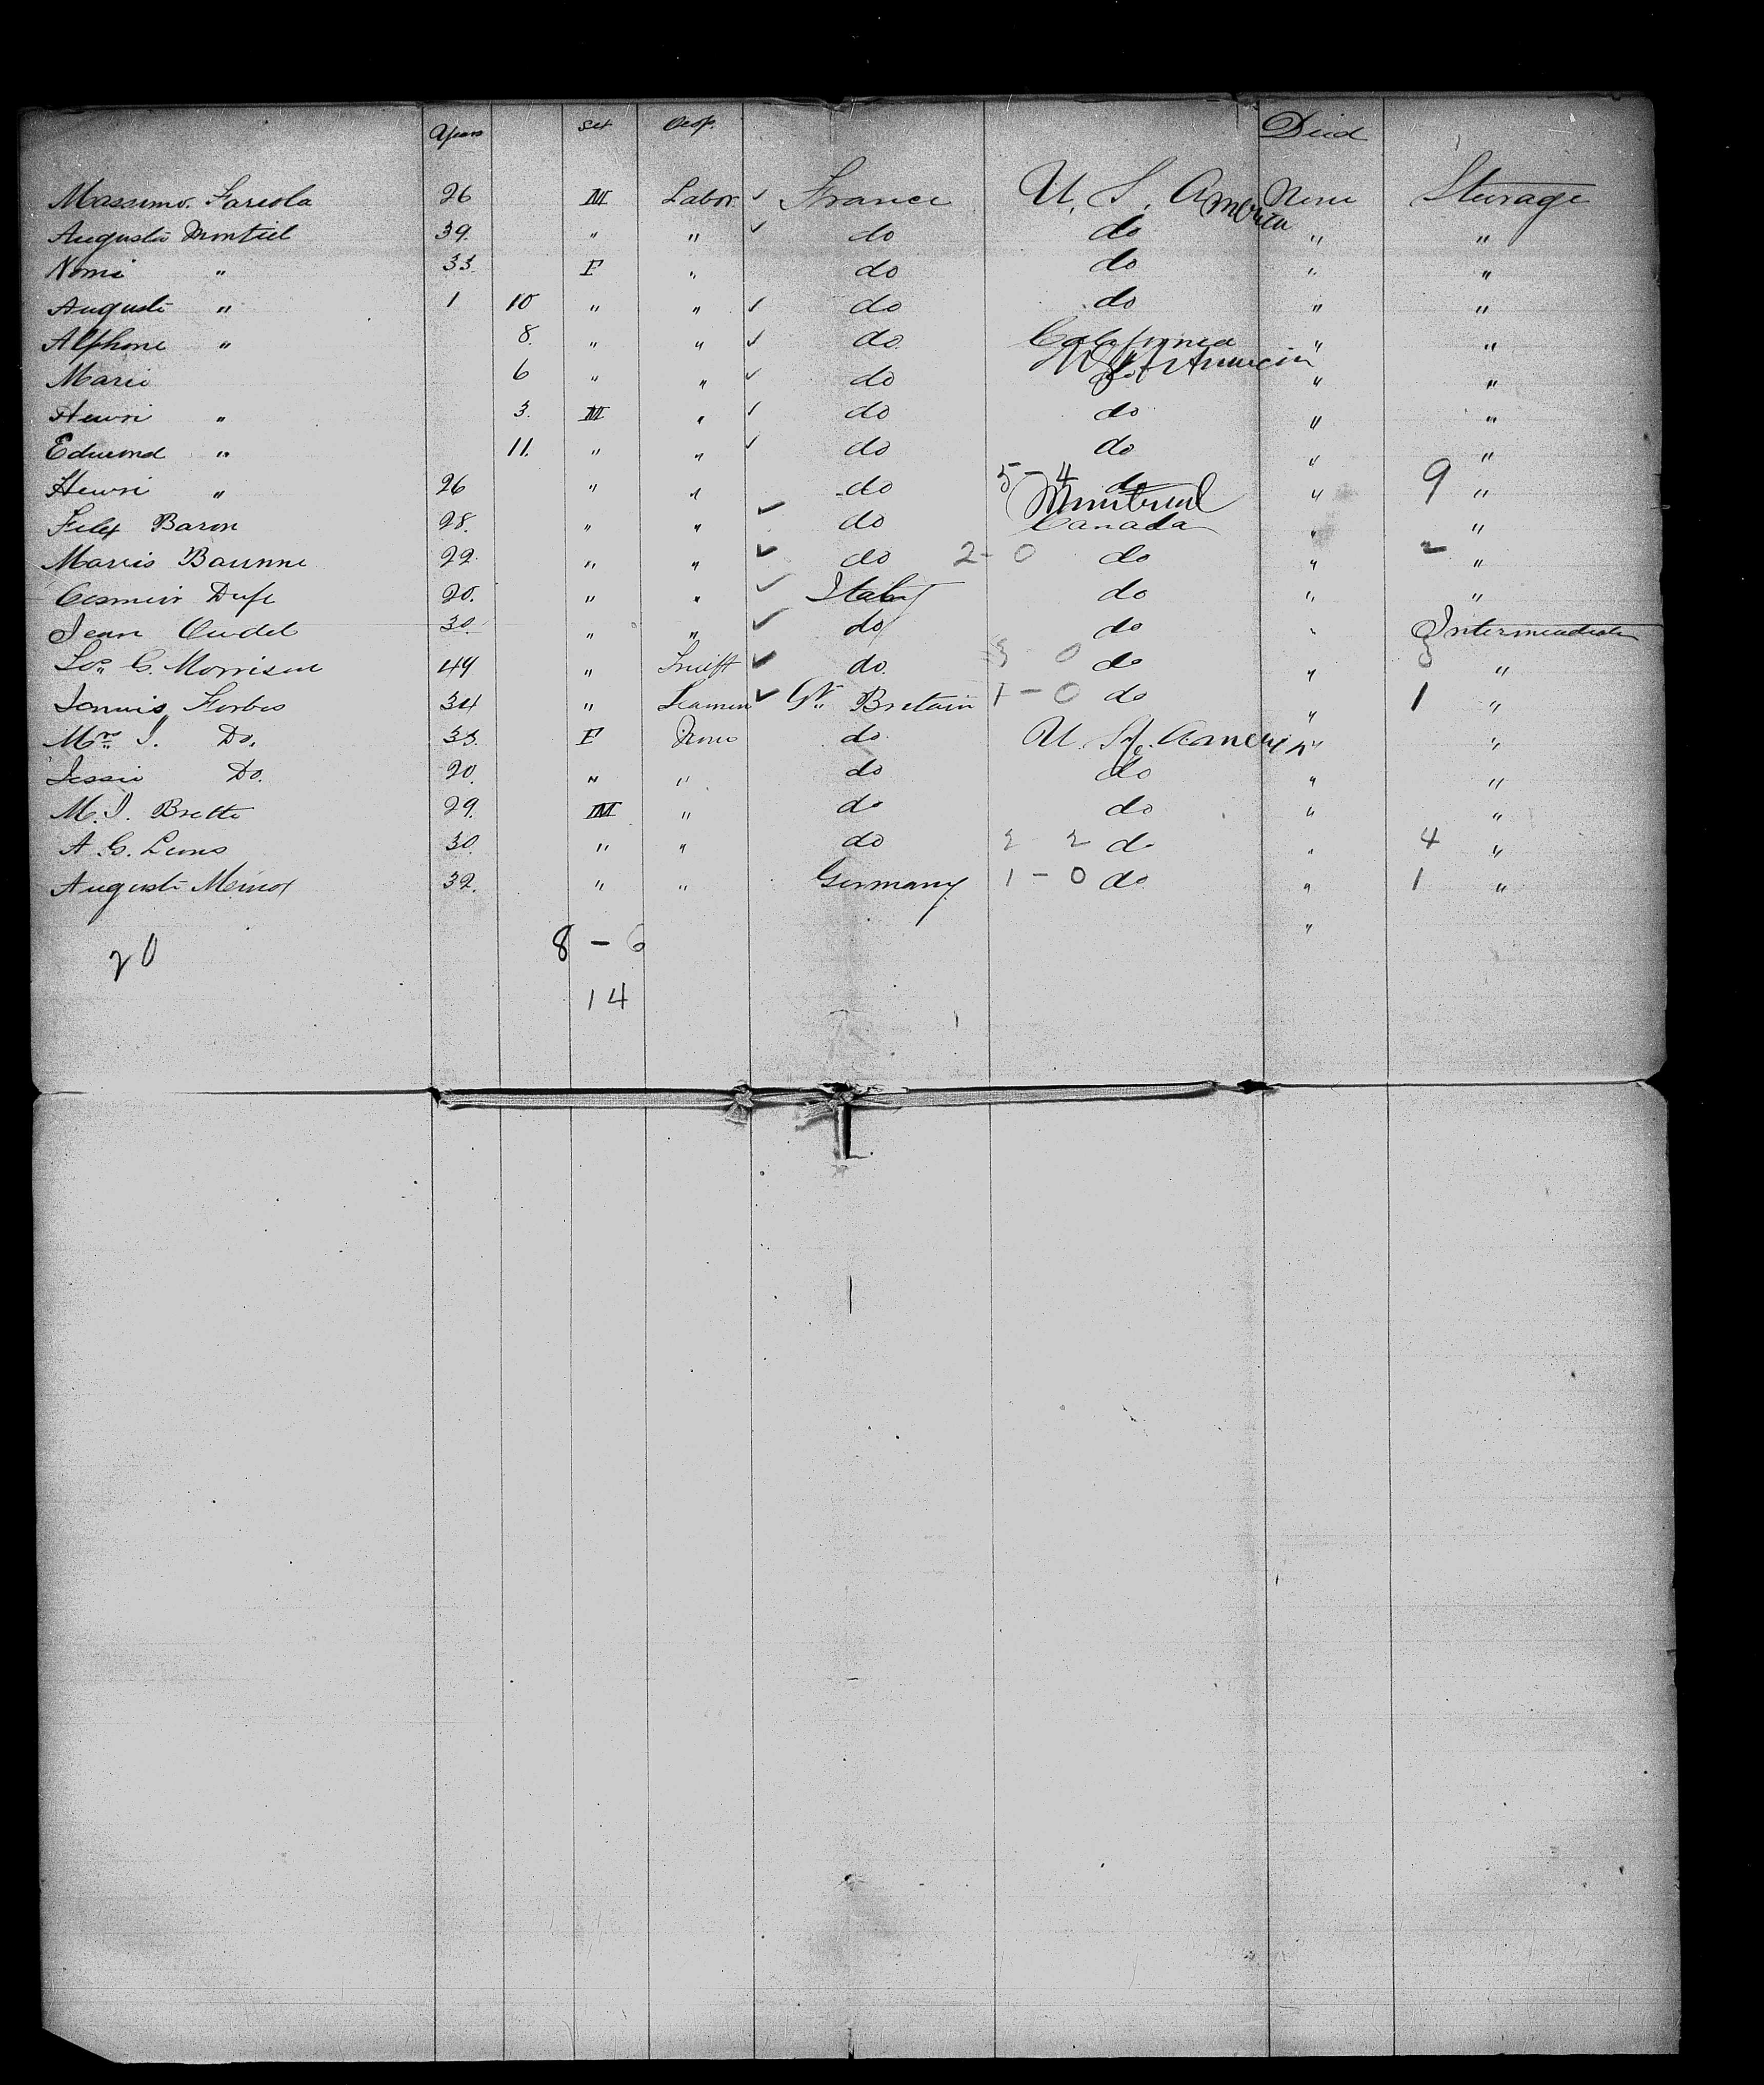 Years Sex Occp. Died
Massimo. Fariola 26 M Labor ✓ France U. S. America None Steerage
Auguste Montiel 39. " " ✓ do do " "
Nomi " 33. F " do do " "
Auguste " 1 10 " " ✓ do do " "
Alphone " 8. " " ✓ do. California " "
U S of America
Marie 6 " " ✓ do do " "
Henri " 3. M " ✓ do do " "
Edmond " 11. " " ✓ do do " "
Henri " 26 " " do 5 - 4 do " 9 "
Montreal
Felix Baron 28. " " ✓ do Canada " "
Maris Baronne 22. " " ✓ do 2 - 0 do " 2 "
Cosmeir Dufe 20. " " ✓ Italy do " "
Jean Oudel 30. " " ✓ do do " Intermediate
C. Morrison 49 " ✓ do. 3 - 0 do " 3 "
Forbes 34 " Seamen ✓ Gt. Britain 1 - 0 do " 1 "
Mrs J. Do. 33. F None do. U. S. America " "
Jessie Do. 20. " " do do " "
M. J. Brette 29. M " do do " "
A G. Lions 30. " " do 2 2 do " 4 "
Auguste 32. " " Germany 1 - 0 do " 1 "
"
20 8 - 6
14